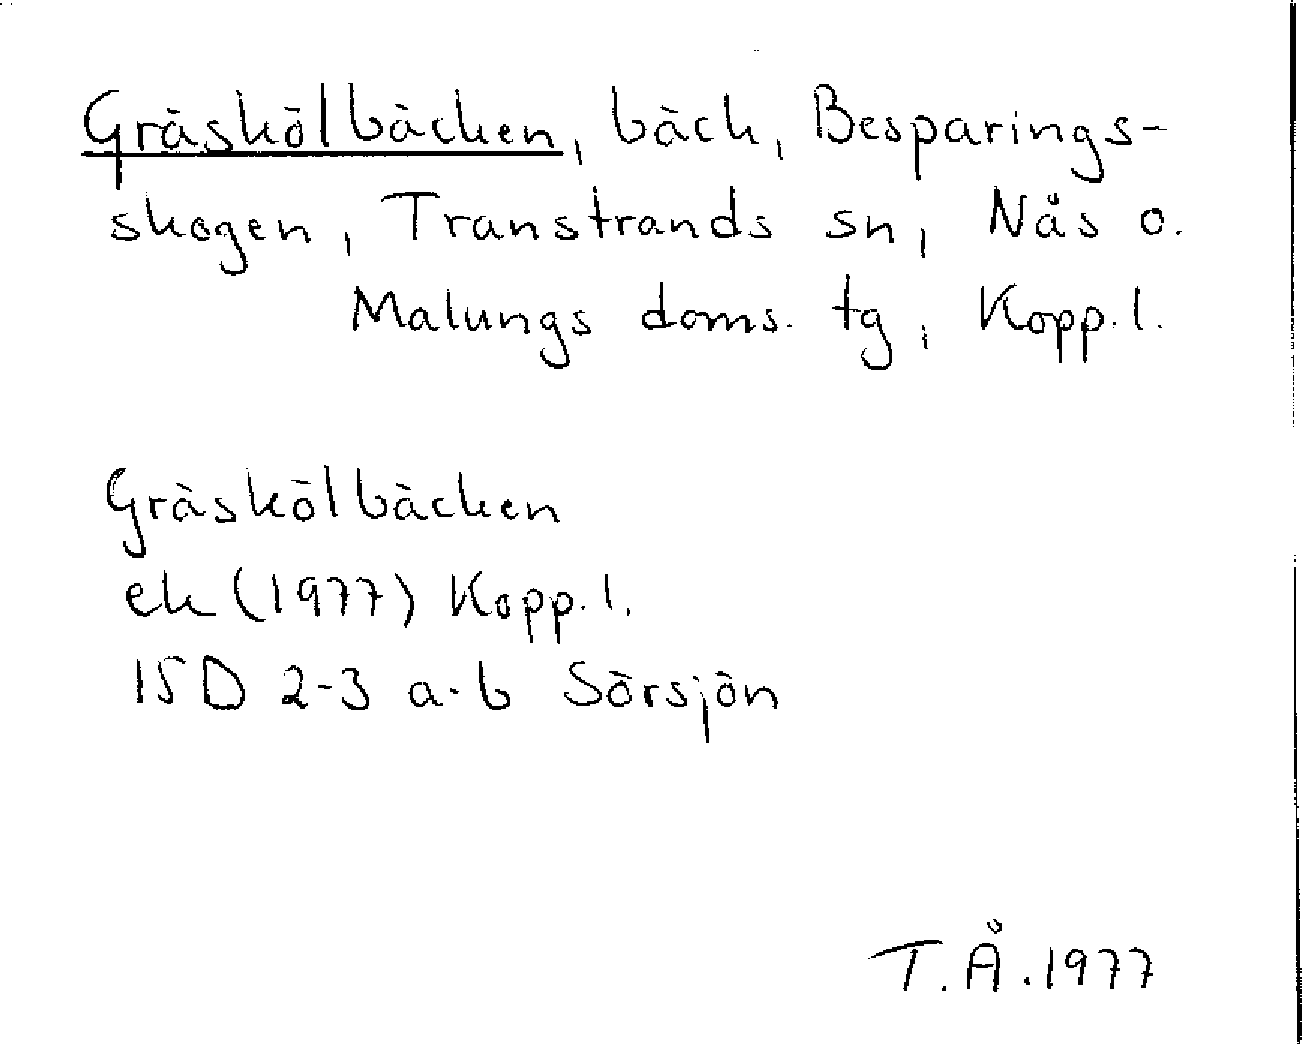 Gräskölbäcken, bäck, Besparings-
skogen, Transtrands sn, Nås o.
Malungs doms. tg, Kopp. l.
Gräskölbäcken
ek (1977) Kopp. l.
15D 2-3 a-b Sörsjön
T. Å. 1977